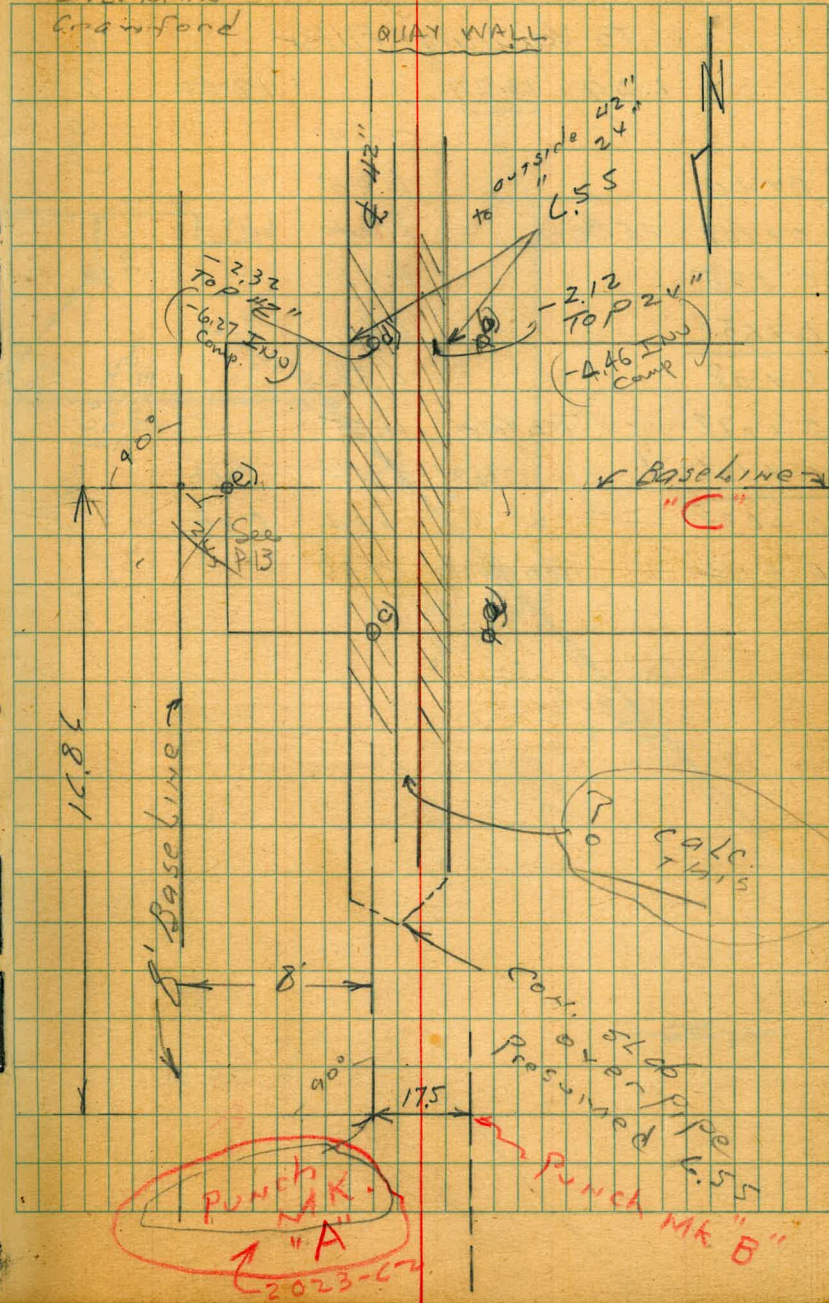 Crawford
QUAY WALL
N
℄ 42"
to outside 42"
" 24"
6.55
-2.32
TOP 42"
(-6.27 INV
Comp.)
d)
b)
-2.12
TOP 24"
(-4.46 INV
Comp)
90°
e)
See
P 13
← Baseline →
"C"
c)
16.86
8' Baseline
8'
calc.
this
Conc.
slab
over pipe
presumed 6.55
90°
17.5
Punch
MK.
"A"
Punch MK "B"